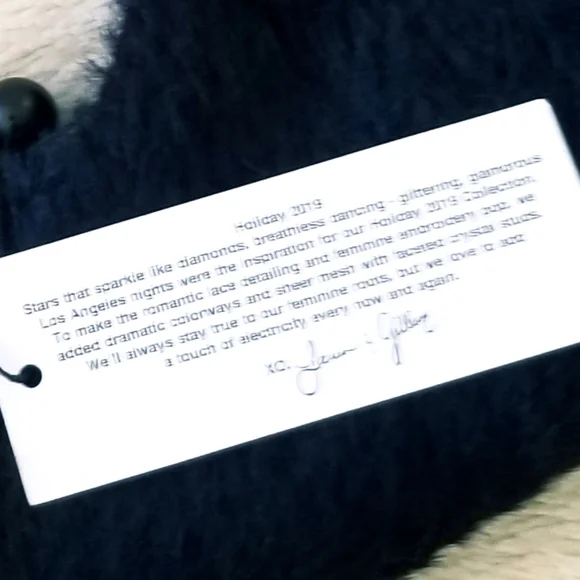 Holiday 2019
Stars that sparkle like diamonds, breathless dancing - glittering, glamorous
Los Angeles nights were the inspiration for our Holiday 2019 Collection.
To make the romantic lace detailing and feminine embroidery bold, we
added dramatic colorways and sheer mesh with faceted crystal studs.
We'll always stay true to our feminine roots, but we love to add
a touch of electricity every now and again.
xo,